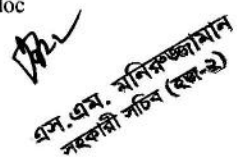 loc
এস.এম. মনিরুজ্জামান
সহকারী সচিব (হজ্ব-২)